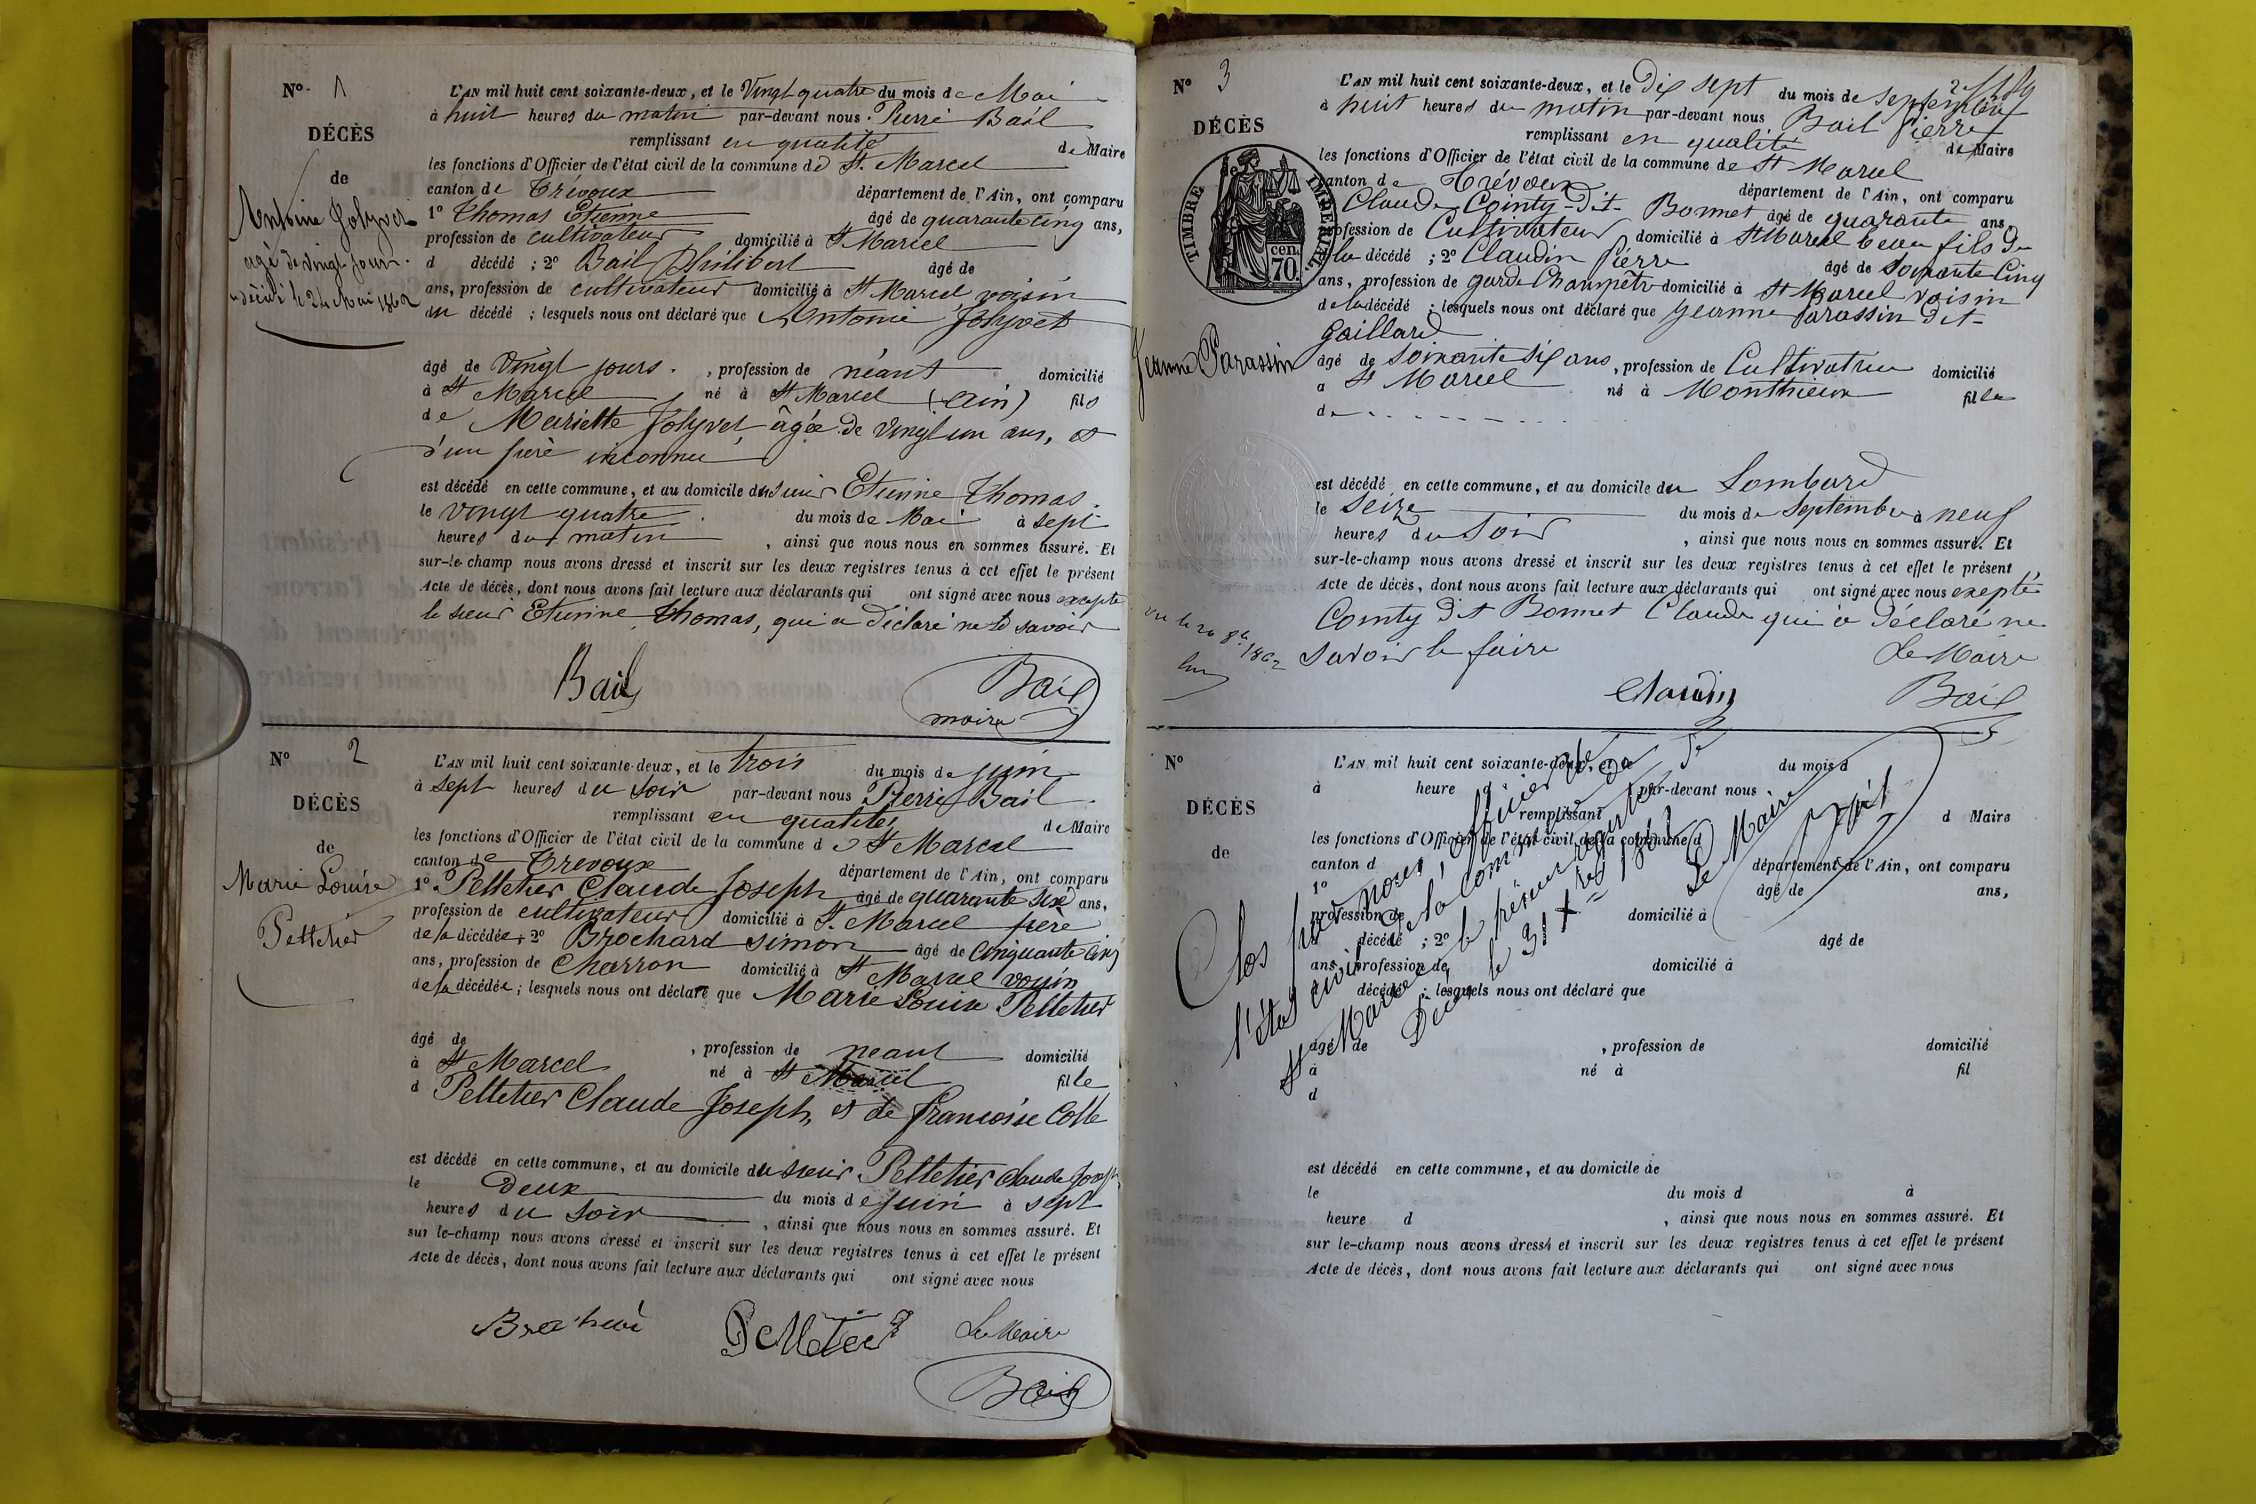 No. 1
L'AN mil huit cent soixante-deux, et le Vingt quatre du mois de Mai
à huit heures du matin par-devant nous Pierre Bail
DÉCÈS
remplissant en qualité de Maire
les fonctions d'Officier de l'état civil de la commune de St. Marcel
de
canton de Trévoux département de l'Ain, ont comparu
Antoine Jolyvet
1o Thomas Etienne âgé de quarante cinq ans,
profession de cultivateur domicilié à St Marcel
agé de vingt jours.
d décédé ; 2o Bail Philibert âgé de
décédé le 24 Mai 1862
ans, profession de cultivateur domicilié à St Marcel voisin
du décédé ; lesquels nous ont déclaré que Antoine Jolyvet
âgé de vingt jours . , profession de néant domicilié
à St Marcel né à St Marcel (Ain) fils
de Mariette Jolyvet, âgée de vingt un ans, et
d'un père inconnu
est décédé en cette commune, et au domicile du sieur Etienne Thomas.
le vingt quatre du mois de Mai à sept
heures du matin , ainsi que nous nous en sommes assuré. Et
sur-le-champ nous avons dressé et inscrit sur les deux registres tenus à cet effet le présent
Acte de décès, dont nous avons fait lecture aux déclarants qui ont signé avec nous excepté
le sieur Etienne Thomas, qui a déclaré ne le savoir
Bail Bail
maire
No 2
L'AN mil huit cent soixante-deux, et le trois du mois de juin
à sept heures du soir par-devant nous Pierre Bail
DÉCÈS
remplissant en qualité de Maire
les fonctions d'Officier de l'état civil de la commune de St Marcel
de
canton de Trevoux département de l'Ain, ont comparu
Marie Louise
Pelletier
1o Pelletier Claude Joseph âgé de quarante six ans,
profession de cultivateur domicilié à St. Marcel père
de la décédée ; 2o Brochard Simon âgé de Cinquante cinq
ans, profession de Charron domicilié à St Marcel voisin
de la décédée ; lesquels nous ont déclaré que Marie Louise Pelletier
âgé de , profession de neant domicilié
à St Marcel né à St Marcel fille
d Pelletier Claude Joseph, et de françoise Colle
est décédé en cette commune, et au domicile du sieur Pelletier Claude Joseph
le deux du mois de juin à sept
heures du soir , ainsi que nous nous en sommes assuré. Et
sur le-champ nous avons dressé et inscrit sur les deux registres tenus à cet effet le présent
Acte de décès, dont nous avons fait lecture aux déclarants qui ont signé avec nous
Pelletier Le Maire
Bail
No 3
L'AN mil huit cent soixante-deux, et le Dix sept du mois de Septembre
à huit heures du matin par-devant nous Bail Pierre
DÉCÈS
remplissant en qualité de Maire
les fonctions d'Officier de l'état civil de la commune de St Marcel
TIMBRE IMPÉRIAL
cen.
70.
canton de Trévoux département de l'Ain, ont comparu
Claude Cointy dit Bonnet âgé de quarante ans,
profession de Cultivateur domicilié à St Marcel beau fils de
la décédé ; 2o Claudin Pierre âgé de soixante Cinq
ans, profession de garde Champêtre domicilié à St Marcel voisin
de la décédé ; lesquels nous ont déclaré que Jeanne Parassin dit
Gaillard
Jeanne Parassin
âgé de soixante six ans, profession de Cultivatrice domicilié
a St Marcel né à Monthieux fille
de
est décédé en cette commune, et au domicile du Lombard
le Seize du mois de Septembre à neuf
heures du Soir , ainsi que nous nous en sommes assuré. Et
sur-le-champ nous avons dressé et inscrit sur les deux registres tenus à cet effet le présent
Acte de décès, dont nous avons fait lecture aux déclarants qui ont signé avec nous exepté
Cointy dit Bonnet Claude qui a déclaré ne
savoir le faire Le Maire
Claudin Bail
No
L'AN mil huit cent soixante-deux, et le du mois d
à heure d par-devant nous
DÉCÈS
remplissant d Maire
les fonctions d'Officier de l'état civil de la commune d
de
canton d département de l'Ain, ont comparu
1o âgé de ans,
profession de domicilié à
d décédé ; 2o âgé de
ans, profession de domicilié à
d décédé ; lesquels nous ont déclaré que
Clos par nous, officier de
l'état civil de la Commune de
St Marcel, le présent registre de
Décès le 31 Xbre 1862
Le Maire
Bail
âgé de , profession de domicilié
à né à fil
d
est décédé en cette commune, et au domicile de
le du mois d à
heure d , ainsi que nous nous en sommes assuré. Et
sur le-champ nous avons dressé et inscrit sur les deux registres tenus à cet effet le présent
Acte de décès, dont nous avons fait lecture aux déclarants qui ont signé avec nous